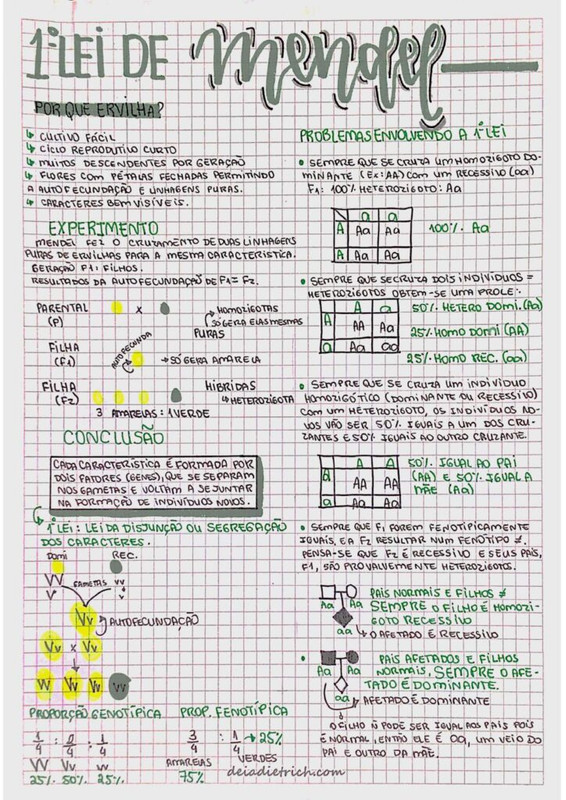 1ª LEI DE mendel
POR QUE ERVILHA?
↳ CULTIVO FÁCIL
↳ CICLO REPRODUTIVO CURTO
↳ MUITOS DESCENDENTES POR GERAÇÃO
↳ FLORES COM PÉTALAS FECHADAS PERMITINDO
A AUTOFECUNDAÇÃO E LINHAGENS PURAS.
↳ CARACTERES BEM VISÍVEIS.
EXPERIMENTO
MENDEL FEZ O CRUZAMENTO DE DUAS LINHAGENS
PURAS DE ERVILHAS PARA A MESMA CARACTERÍSTICA.
GERAÇÃO F1: FILHOS.
RESULTADOS DA AUTOFECUNDAÇÃO DE F1 = F2.
PARENTAL x HOMOZIGOTAS
(P) ↳ SÓ GERA ELAS MESMAS
PURAS
AUTOFECUNDA
FILHA → SÓ GERA AMARELA
(F1)
FILHA HÍBRIDAS
(F2) ↳ HETEROZIGOTA
3 AMARELAS : 1 VERDE
CONCLUSÃO
CADA CARACTERÍSTICA É FORMADA POR
DOIS FATORES (GENES), QUE SE SEPARAM
NOS GAMETAS E VOLTAM A SE JUNTAR
NA FORMAÇÃO DE INDIVÍDUOS NOVOS.
1ª LEI: LEI DA DISJUNÇÃO OU SEGREGAÇÃO
DOS CARACTERES.
Domi REC.
VV GAMETAS vv
V v
Vv AUTOFECUNDAÇÃO
Vv x Vv
VV Vv Vv vv
PROPORÇÃO GENOTÍPICA
1/4 : 2/4 : 1/4
VV Vv vv
25% 50% 25%
PROP. FENOTÍPICA
3/4 : 1/4 → 25%
AMARELAS VERDES
75%
PROBLEMAS ENVOLVENDO A 1ª LEI
• SEMPRE QUE SE CRUZA UM HOMOZIGOTO DO-
MINANTE (Ex: AA) COM UM RECESSIVO (aa)
F1: 100% HETEROZIGOTO: Aa
a a
A Aa Aa 100% Aa
A Aa Aa
• SEMPRE QUE SE CRUZA DOIS INDIVÍDUOS =
HETEROZIGOTOS OBTEM-SE UMA PROLE:
A a
A AA Aa
a Aa aa
50% HETERO DOMI. (Aa)
25% HOMO DOMI (AA)
25% HOMO REC. (aa)
• SEMPRE QUE SE CRUZA UM INDIVÍDUO
HOMOZIGÓTICO (DOMINANTE OU RECESSIVO)
COM UM HETEROZIGOTO, OS INDIVÍDUOS NO-
VOS VÃO SER 50% IGUAIS A UM DOS CRU-
ZANTES E 50% IGUAIS AO OUTRO CRUZANTE.
A A
A AA AA
a Aa Aa
50% IGUAL AO PAI
(AA) E 50% IGUAL A
MÃE (Aa)
• SEMPRE QUE F1 FOREM FENOTIPICAMENTE
IGUAIS, E A F2 RESULTAR NUM FENÓTIPO ≠.
PENSA-SE QUE F2 É RECESSIVO E SEUS PAIS,
F1, SÃO PROVALMENTE HETEROZIGOTOS.
• PAIS NORMAIS E FILHOS ≠
Aa Aa SEMPRE O FILHO É HOMOZI-
GOTO RECESSIVO
aa ↳ O AFETADO É RECESSIVO
• PAIS AFETADOS E FILHOS
Aa Aa NORMAIS, SEMPRE O AFE-
TADO É DOMINANTE.
aa AFETADO É DOMINANTE
O FILHO Ñ PODE SER IGUAL AOS PAIS POIS
É NORMAL, ENTÃO ELE É aa, UM VEIO DO
PAI E OUTRO DA MÃE.
deiadietrich.com